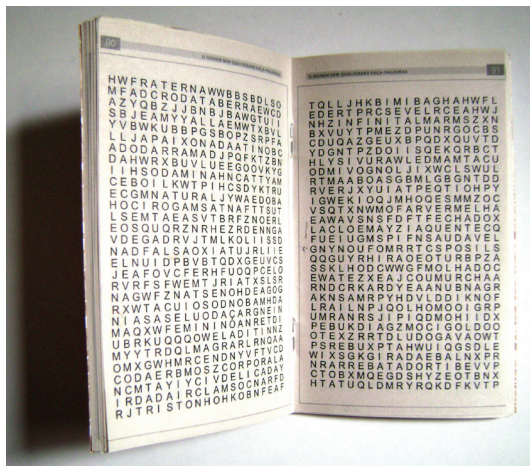 90
O HOMEM SEM QUALIDADES CAÇA-PALAVRAS
HWFRATERNAWWBBSBDLSO
MFADCRODATABERRAEWCD
AZYQBZJJBNLBJBAWGTUII
SBJEAMYYALLAEMWTXBVL
YVBWKUBBPGSBOPZSRPFA
LLJAPAIXONADAATINOBC
ADODARRAMADJPQFKTZBN
DAHWRXBUVLUEEGOOVKYG
IIHSODAMINAHNCATTYAM
CEBOILKWTPIHCSDYKTRU
ECGMNATURALJYWAEDOBA
HOCIROGAMSATNAFTTSUT
LSEMTAEASVTBRFZNOERL
EOSQUQRZNRHEZRDENNGA
VDEGADRVJTMLKOLIISSD
NADFALSAOXIATUJRLIIE
ELNUIDPBVBTQDXGEUVCS
JEAFOVCFERHFUOQPCELO
RVRFSFWEMTJRIATXSLSR
NAGWFZNATSENOHDEAGOG
RXWTACUIOSODNOBAMHDA
NIASASELUODAÇARGNEIN
MAQXWFEMININOANRETDI
UBRKUQQQOWELADITINNZ
MYYTRDQLMAGRARLRNQAA
OMXGWHMRCENDNYVFTVCD
CODAERBMOSZCORPORALA
NCMTAYIYCIVDELICADAY
IRDADAIRCLAMSOCNARFD
RJTRISTONHOHKOBNFEAF
91
O HOMEM SEM QUALIDADES CAÇA-PALAVRAS
TQLLJHKBIMIBAGHAHWFL
EDERTPRCSEVELRCEAHWJ
NHZINFINITALMARMSZXN
BXVUYTPMEZDPUNRGOCBS
CDUQAZGEUXBPODXQUVTD
YDGNTPZDOIISQEKQRBCT
HLYSIVURAWLEDMAMTACU
ODMIVOGNOLJIXWCLSWUL
RTMAABOASGBMLGBGNTDD
RVERJXYUIATPEQTIOHPY
IGWEKIOQJMHOQESMMZOC
VSQTXNWMOFARVERMELHA
EAWAVSNSFDFTFECHADOX
LACLOEMAYZIAQUENTECQ
FUEIUGMSPIFNSAUDAVEL
GNYNOUFOMRRTCSPOSILS
QQGUYRHIRAOEOTURBPZA
SSKLHODCWWGFMOLHADOC
EWATEZXEAJCOUMURCHAA
RNDCRKARDYEAANUBNAGR
AKNSAMRPYHDVLDDIKNOF
LRAILNPJQOLHOMOOIGRP
UMRANRSJIPIQDMOHIIDX
PEBUKDIAGZMOCIGOLDOO
OTEXZRRTDLUDOGAVAOWT
PSREBUXPTAHWUIQGSDLE
WIXSGKGIRADAEBALNXPR
NRARREBATADORTIBEVVP
CTOBXMQEGDSHYZEOTBNX
HTATUQLDMRYRQKDFKVTP